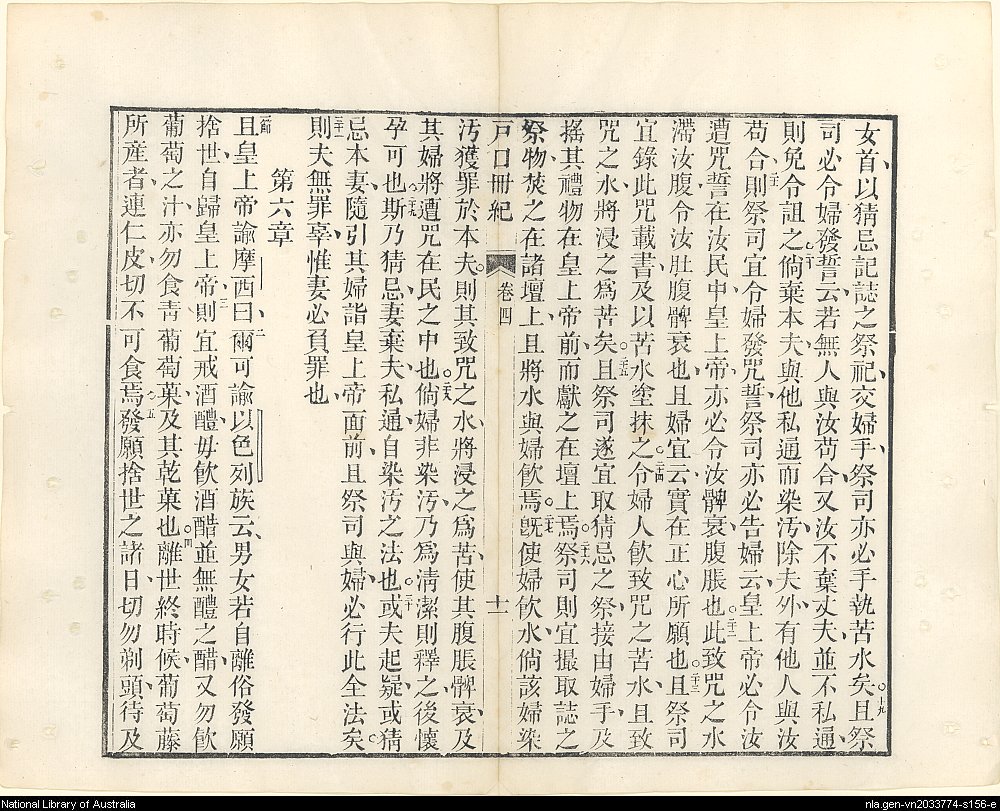 女首以猜忌記誌之祭祀交婦手祭司亦必手執苦水矣十九且祭
司必令婦發誓云若無人與汝苟合又汝不棄丈夫並不私通
則免令詛之二十倘棄本夫與他私通而染汚除夫外有他人與汝
苟合二十一則祭司宜令婦發咒誓祭司亦必告婦云皇上帝必令汝
遭咒誓在汝民中皇上帝亦必令汝髀衰腹脹也二十二此致咒之水
滯汝腹令汝肚腹髀衰也且婦宜云實在正心所願也二十三且祭司
宜錄此咒載書及以苦水塗抹之二十四令婦人飲致咒之苦水且致
咒之水將浸之爲苦矣二十五且祭司遂宜取猜忌之祭接由婦手及
搖其禮物在皇上帝前而獻之在壇上焉二十六祭司則宜撮取誌之
祭物焚之在諸壇上且將水與婦飲焉二十七旣使婦飲水倘該婦染
戶口冊紀 卷四 十一
汚獲罪於本夫則其致咒之水將浸之爲苦使其腹脹髀衰及
其婦將遭咒在民之中也二十八倘婦非染汚乃爲清潔則釋之後懷
孕可也二十九斯乃猜忌妻棄夫私通自染汚之法也三十或夫起疑或猜
忌本妻隨引其婦詣皇上帝面前且祭司與婦必行此全法矣
三十一則夫無罪辜惟妻必負罪也
第六章
一節且皇上帝諭摩西曰二爾可諭以色列族云男女若自離俗發願
捨世自歸皇上帝三則宜戒酒醴毋飲酒醋並無醴之醋又勿飲
葡萄之汁亦勿食靑葡萄菓及其乾菓也四離世終時候葡萄藤
所產者連仁皮切不可食焉五發願捨世之諸日切勿剃頭待及
National Library of Australia
nla.gen-vn2033774-s156-e